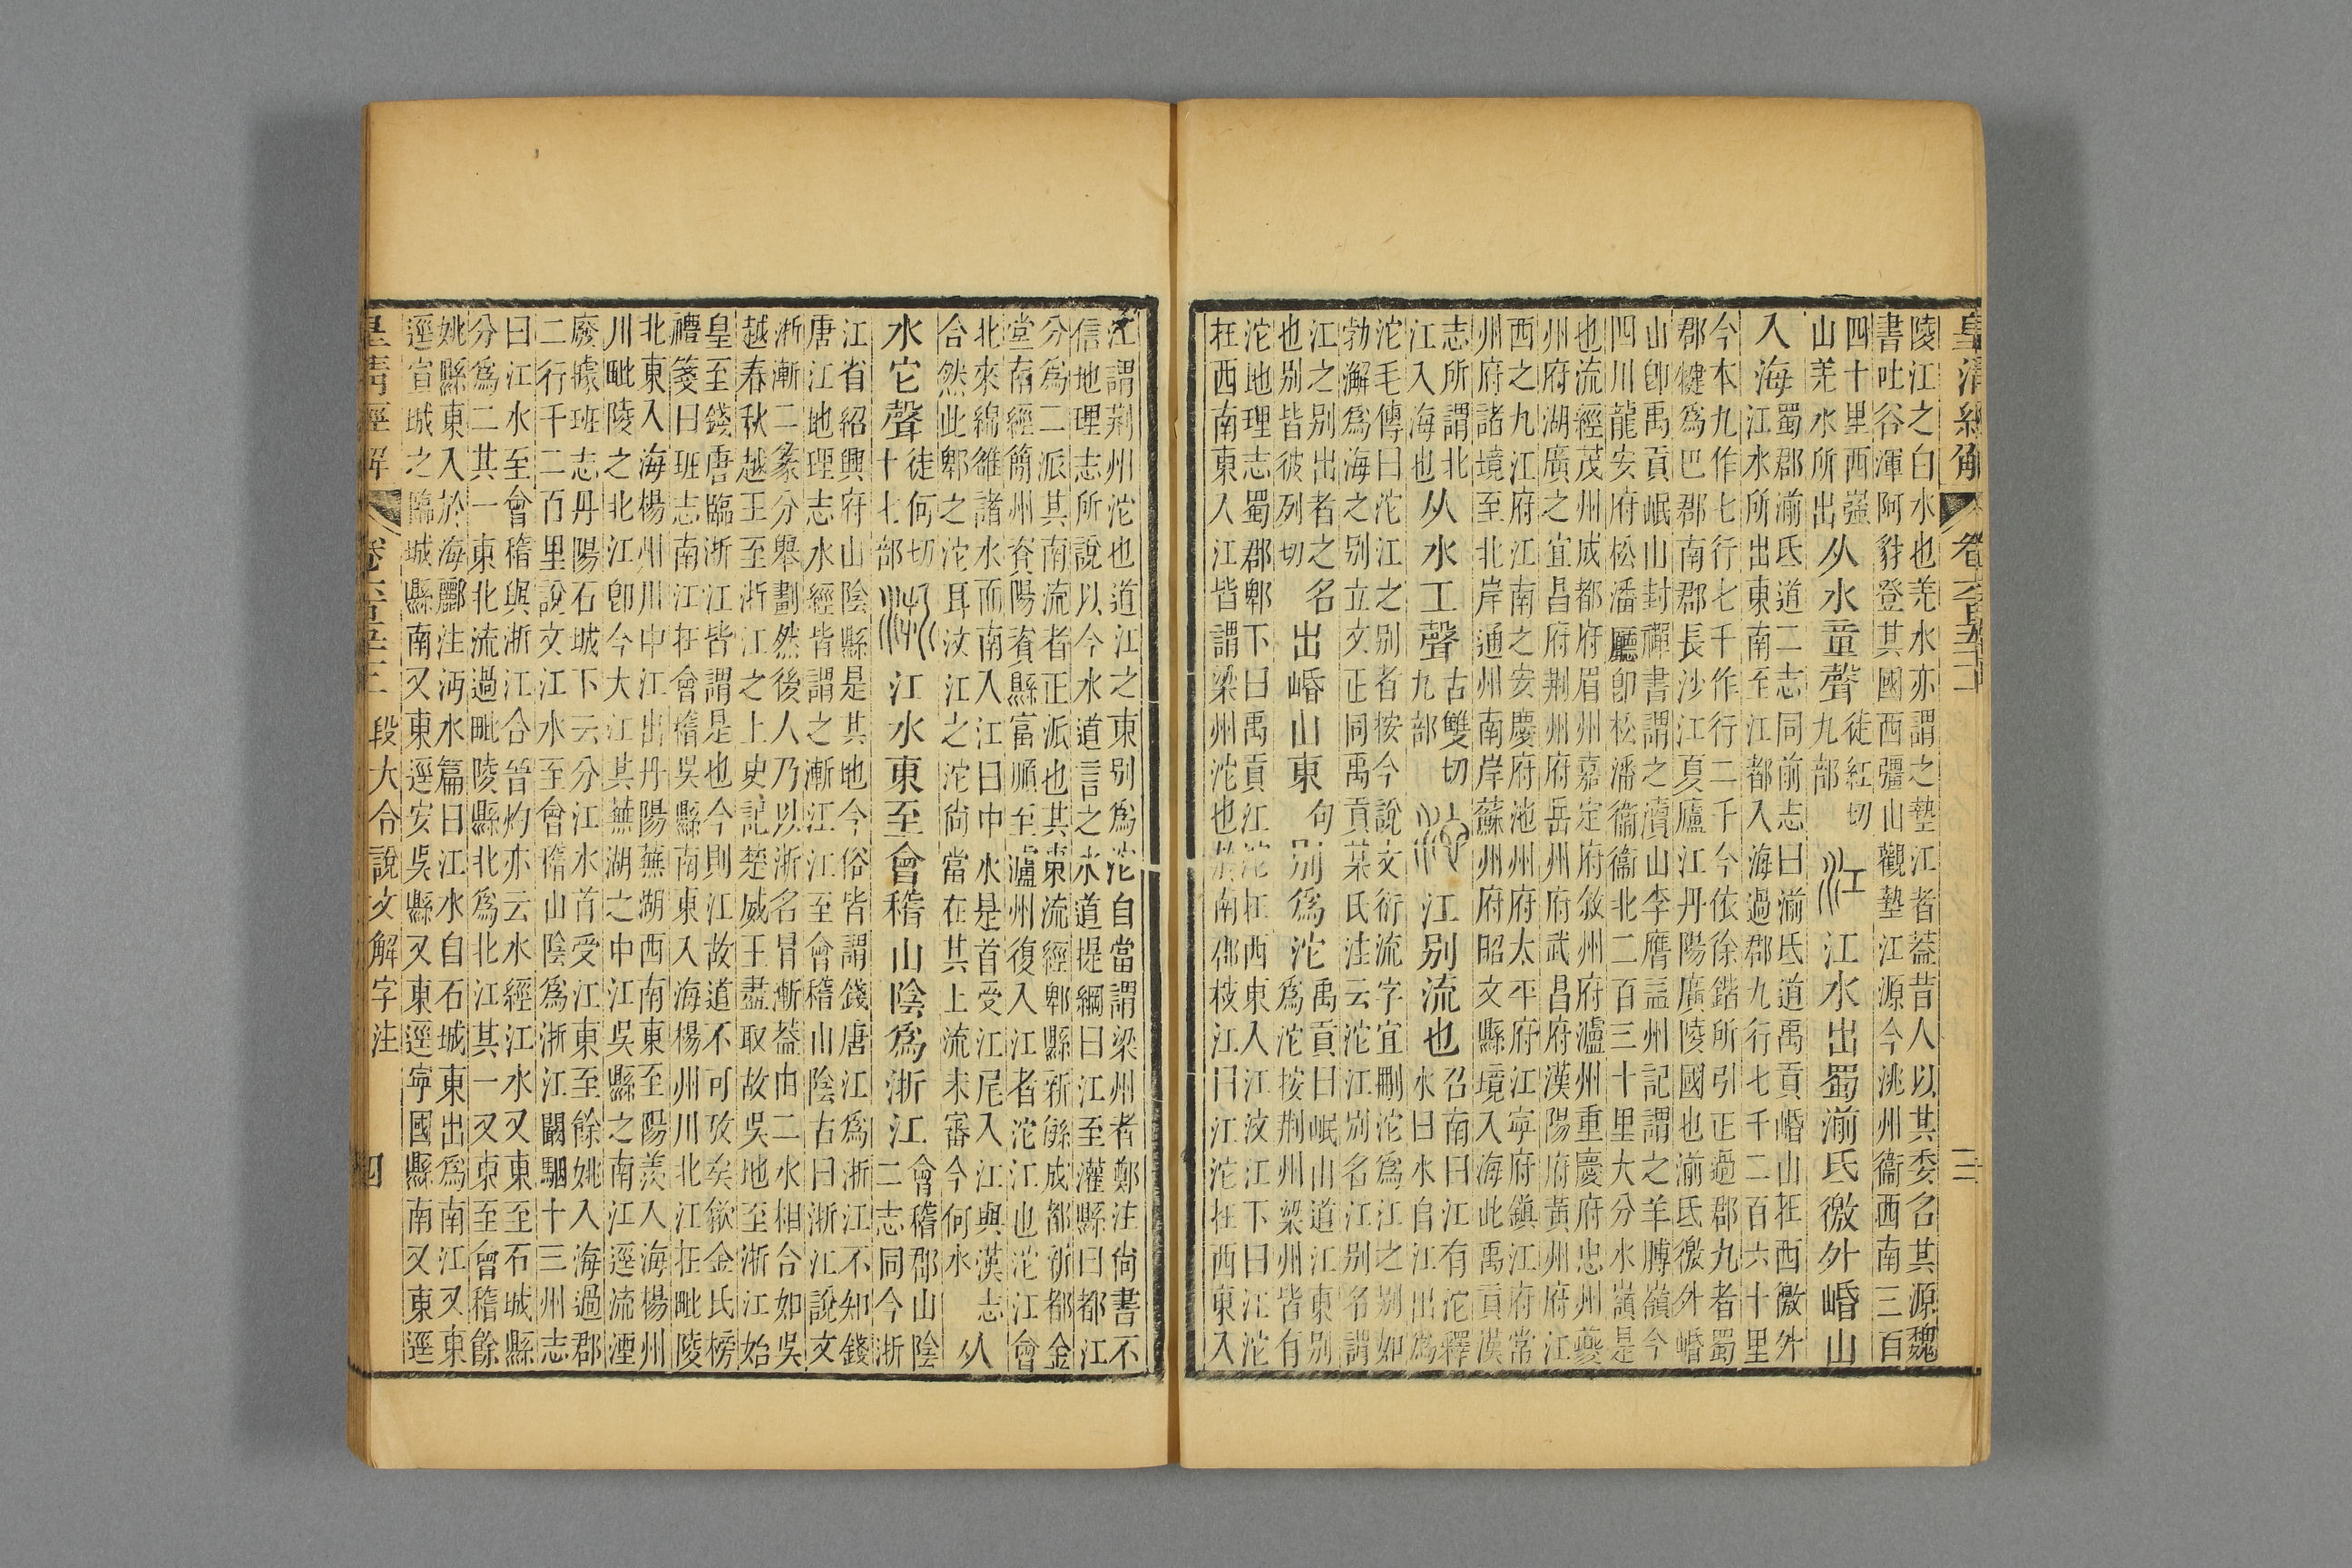 皇清經解 卷六百五十一 三
陵江之白水也羌水亦謂之墊江者葢昔人以其委名其源魏
書吐谷渾阿豺登其國西彊山觀墊江源今洮州衞西南三百
四十里西彊
山羌水所出
从水童聲
徒紅切
九部
江水出蜀湔氐徼外崏山
入海
蜀郡湔氐道二志同前志曰湔氐道禹貢崏山在西徼外
江水所出東南至江都入海過郡九行七千二百六十里
今本九作七行七千作行二千今依徐鍇所引正過郡九者蜀
郡犍爲巴郡南郡長沙江夏廬江丹陽廣陵國也湔氐徼外崏
山卽禹貢岷山封禪書謂之瀆山李膺益州記謂之羊膊嶺今
四川龍安府松潘廳卽松潘衞衞北二百三十里大分水嶺是
也流經茂州成都府眉州嘉定府敘州府瀘州重慶府忠州夔
州府湖廣之宜昌府荆州府岳州府武昌府漢陽府黃州府江
西之九江府江南之安慶府池州府太平府江寧府鎮江府常
州府諸境至北岸通州南岸蘇州府昭文縣境入海此禹貢漢
志所謂北
江入海也
从水工聲
古雙切
九部
江别流也
召南曰江有沱釋
水曰水自江出爲
沱毛傳曰沱江之别者按今說文衍流字宜刪沱爲江之别如
勃澥爲海之别立文正同禹貢某氏注云沱江别名江别名謂
江之别出者之名
也别皆彼列切
出崏山東
句
别爲沱
禹貢曰岷山道江東别
爲沱按荆州梁州皆有
沱地理志蜀郡郫下曰禹貢江沱在西東入江汶江下曰江沱
在西南東入江皆謂梁州沱也於南郡枝江曰江沱在西東入
江謂荆州沱也道江之東别爲沱自當謂梁州者鄭注尙書不
信地理志所說以今水道言之水道提綱曰江至灌縣曰都江
分爲二派其南流者正派也其東流經郫縣新繁成都新都金
堂南經簡州資陽資縣富順至瀘州復入江者沱江也沱江會
北來綿雒諸水而南入江曰中水是首受江尾入江與漢志
合然此郫之沱耳汶江之沱尙當在其上流未審今何水
从
水它聲
徒何切
十七部
江水東至會稽山陰爲浙江
會稽郡山陰
二志同今浙
江省紹興府山陰縣是其地今俗皆謂錢唐江爲浙江不知錢
唐江地理志水經皆謂之漸江江至會稽山陰古曰浙江說文
浙漸二篆分舉劃然後人乃以浙名冒漸葢由二水相合如吳
越春秋越王至浙江之上史記楚威王盡取故吳地至浙江始
皇至錢唐臨浙江皆謂是也今則江故道不可攷矣歙金氏榜
禮箋曰班志南江在會稽吳縣南東入海楊州川北江在毗陵
北東入海楊州川中江出丹陽蕪湖西南東至陽羨入海楊州
川毗陵之北江卽今大江其蕪湖之中江吳縣之南江逕流湮
廢據班志丹陽石城下云分江水首受江東至餘姚入海過郡
二行千二百里說文江水至會稽山陰爲浙江闞駰十三州志
曰江水至會稽與浙江合晉灼亦云水經江水又東至石城縣
分爲二其一東北流過毗陵縣北爲北江其一又東至會稽餘
姚縣東入於海酈注沔水篇曰江水自石城東出爲南江又東
逕宣城之臨城縣南又東逕安吳縣又東逕寧國縣南又東逕
皇清經解 段大令說文解字注 四